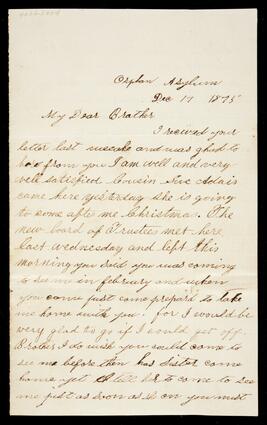 Orphan Asylum
Dec 17 1875
My Dear Brother
I recived your
letter last and was glad to
from you I am well and very
well satisfied Cousin Sue Adair
came here yesterday she is going
to come afte me Christmas. The
new board of Trustees met here
last wednesday and left this
morning you said you was coming
to see me in february and when
you come just come prepard to take
me home with you. for I would be
very glad to go if I could get off.
Brother I do wish you could come to
see me before then has Sister come
home yet tell her to come to see
me just as soon as can you must